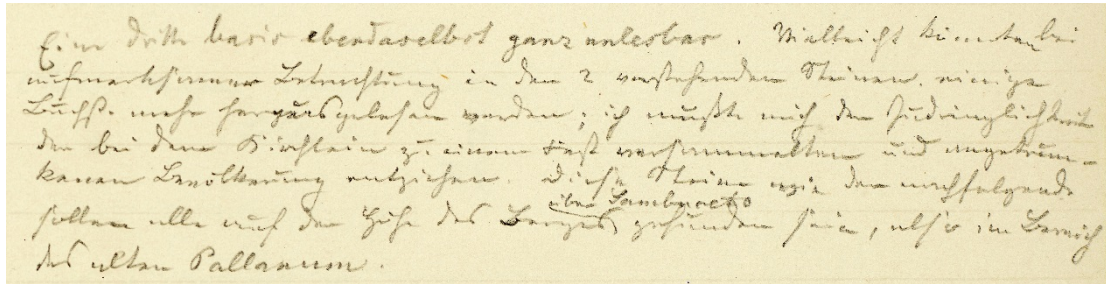 Eine dritte basis ebendaselbst ganz unlesbar. Vielleicht könnten bei
aufmerksamer Betrachtung in den 2 vorstehenden Steinen einige
Buchst. mehr herausgelesen werden; ich mußte mich den Zudringlichkeiten
der bei dem Kirchlein zu einem Fest versammelten und angetrun-
kenen Bevölkerung entziehen. Diese Steine wie der nachfolgende
über Sambuceto
sollen alle auf der Höhe des Berges gefunden sein, also im Bereich
des alten Pallanum.